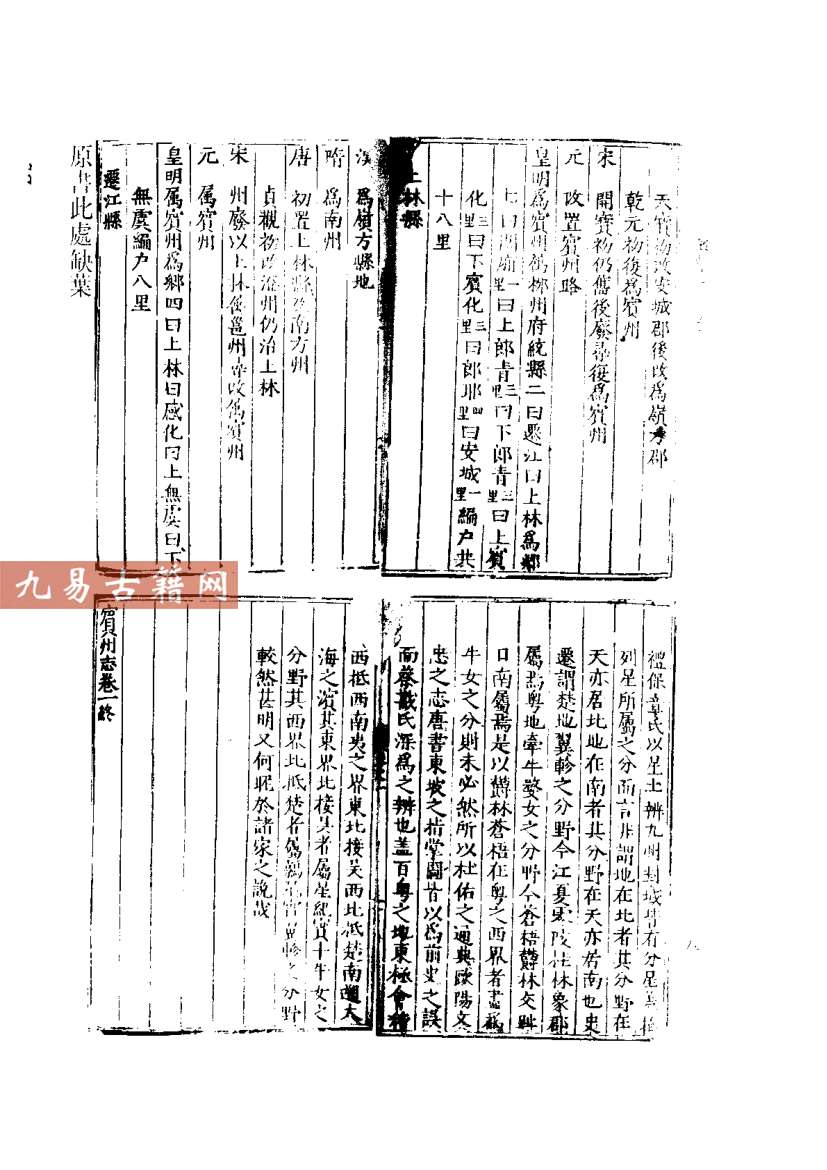 天寶初改安城郡後改爲嶺方郡
乾元初復爲賓州
宋 開寶初仍舊後廢尋復爲賓州
元 改置賓州路
皇明爲賓州屬柳州府統縣二曰遷江曰上林爲鄉
七曰 一里曰上郎青二里曰下郎青三里曰上賓
化三里曰下賓化三里曰郎耶四里曰安城一里編户共
十八里
上林縣
漢 爲嶺方縣地
隋 爲南州
唐 初置上林縣 南方州
貞觀初改澄州仍治上林
宋 州廢以上林屬邕州尋改屬賓州
元 屬賓州
皇明屬賓州爲鄉四曰上林曰感化曰上無虞曰下
無虞編户八里
遷江縣
原書此處缺葉
九易古籍网
禮保章氏以星土辨九州封域皆有分星蓋
列星所屬之分而言非謂地在北者其分野在
天亦居北地在南者其分野在天亦居南也史
遷謂楚地翼軫之分野今江夏零陵桂林象郡
屬焉粤地牽牛婺女之分野今蒼梧欝林交趾
日南屬焉是以欝林蒼梧在粤之西界者盡爲
牛女之分則未必然所以杜佑之通典歐陽文
忠之志唐書東坡之指掌圖皆以爲前史之誤
而蔡戴氏深爲之辨也盖百粤之地東極會稽
西抵西南夷之界東北接吴西北抵楚南遡大
海之濵其東界北接吴者屬星紀實斗牛女之
分野其西界北抵楚者屬鶉尾實翼軫之分野
較然甚明又何眤於諸家之説哉
賓州志卷一終